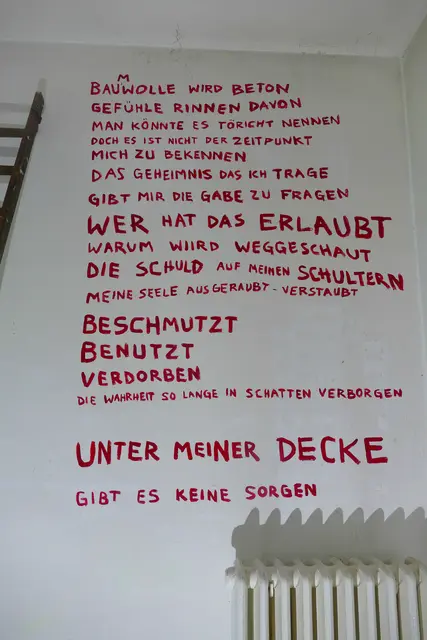 BAUMWOLLE WIRD BETON
GEFÜHLE RINNEN DAVON
MAN KÖNNTE ES TÖRICHT NENNEN
DOCH ES IST NICHT DER ZEITPUNKT
MICH ZU BEKENNEN
DAS GEHEIMNIS DAS ICH TRAGE
GIBT MIR DIE GABE ZU FRAGEN
WER HAT DAS ERLAUBT
WARUM WIIRD WEGGESCHAUT
DIE SCHULD AUF MEINEN SCHULTERN
MEINE SEELE AUSGERAUBT - VERSTAUBT
BESCHMUTZT
BENUTZT
VERDORBEN
DIE WAHRHEIT SO LANGE IN SCHATTEN VERBORGEN
UNTER MEINER DECKE
GIBT ES KEINE SORGEN